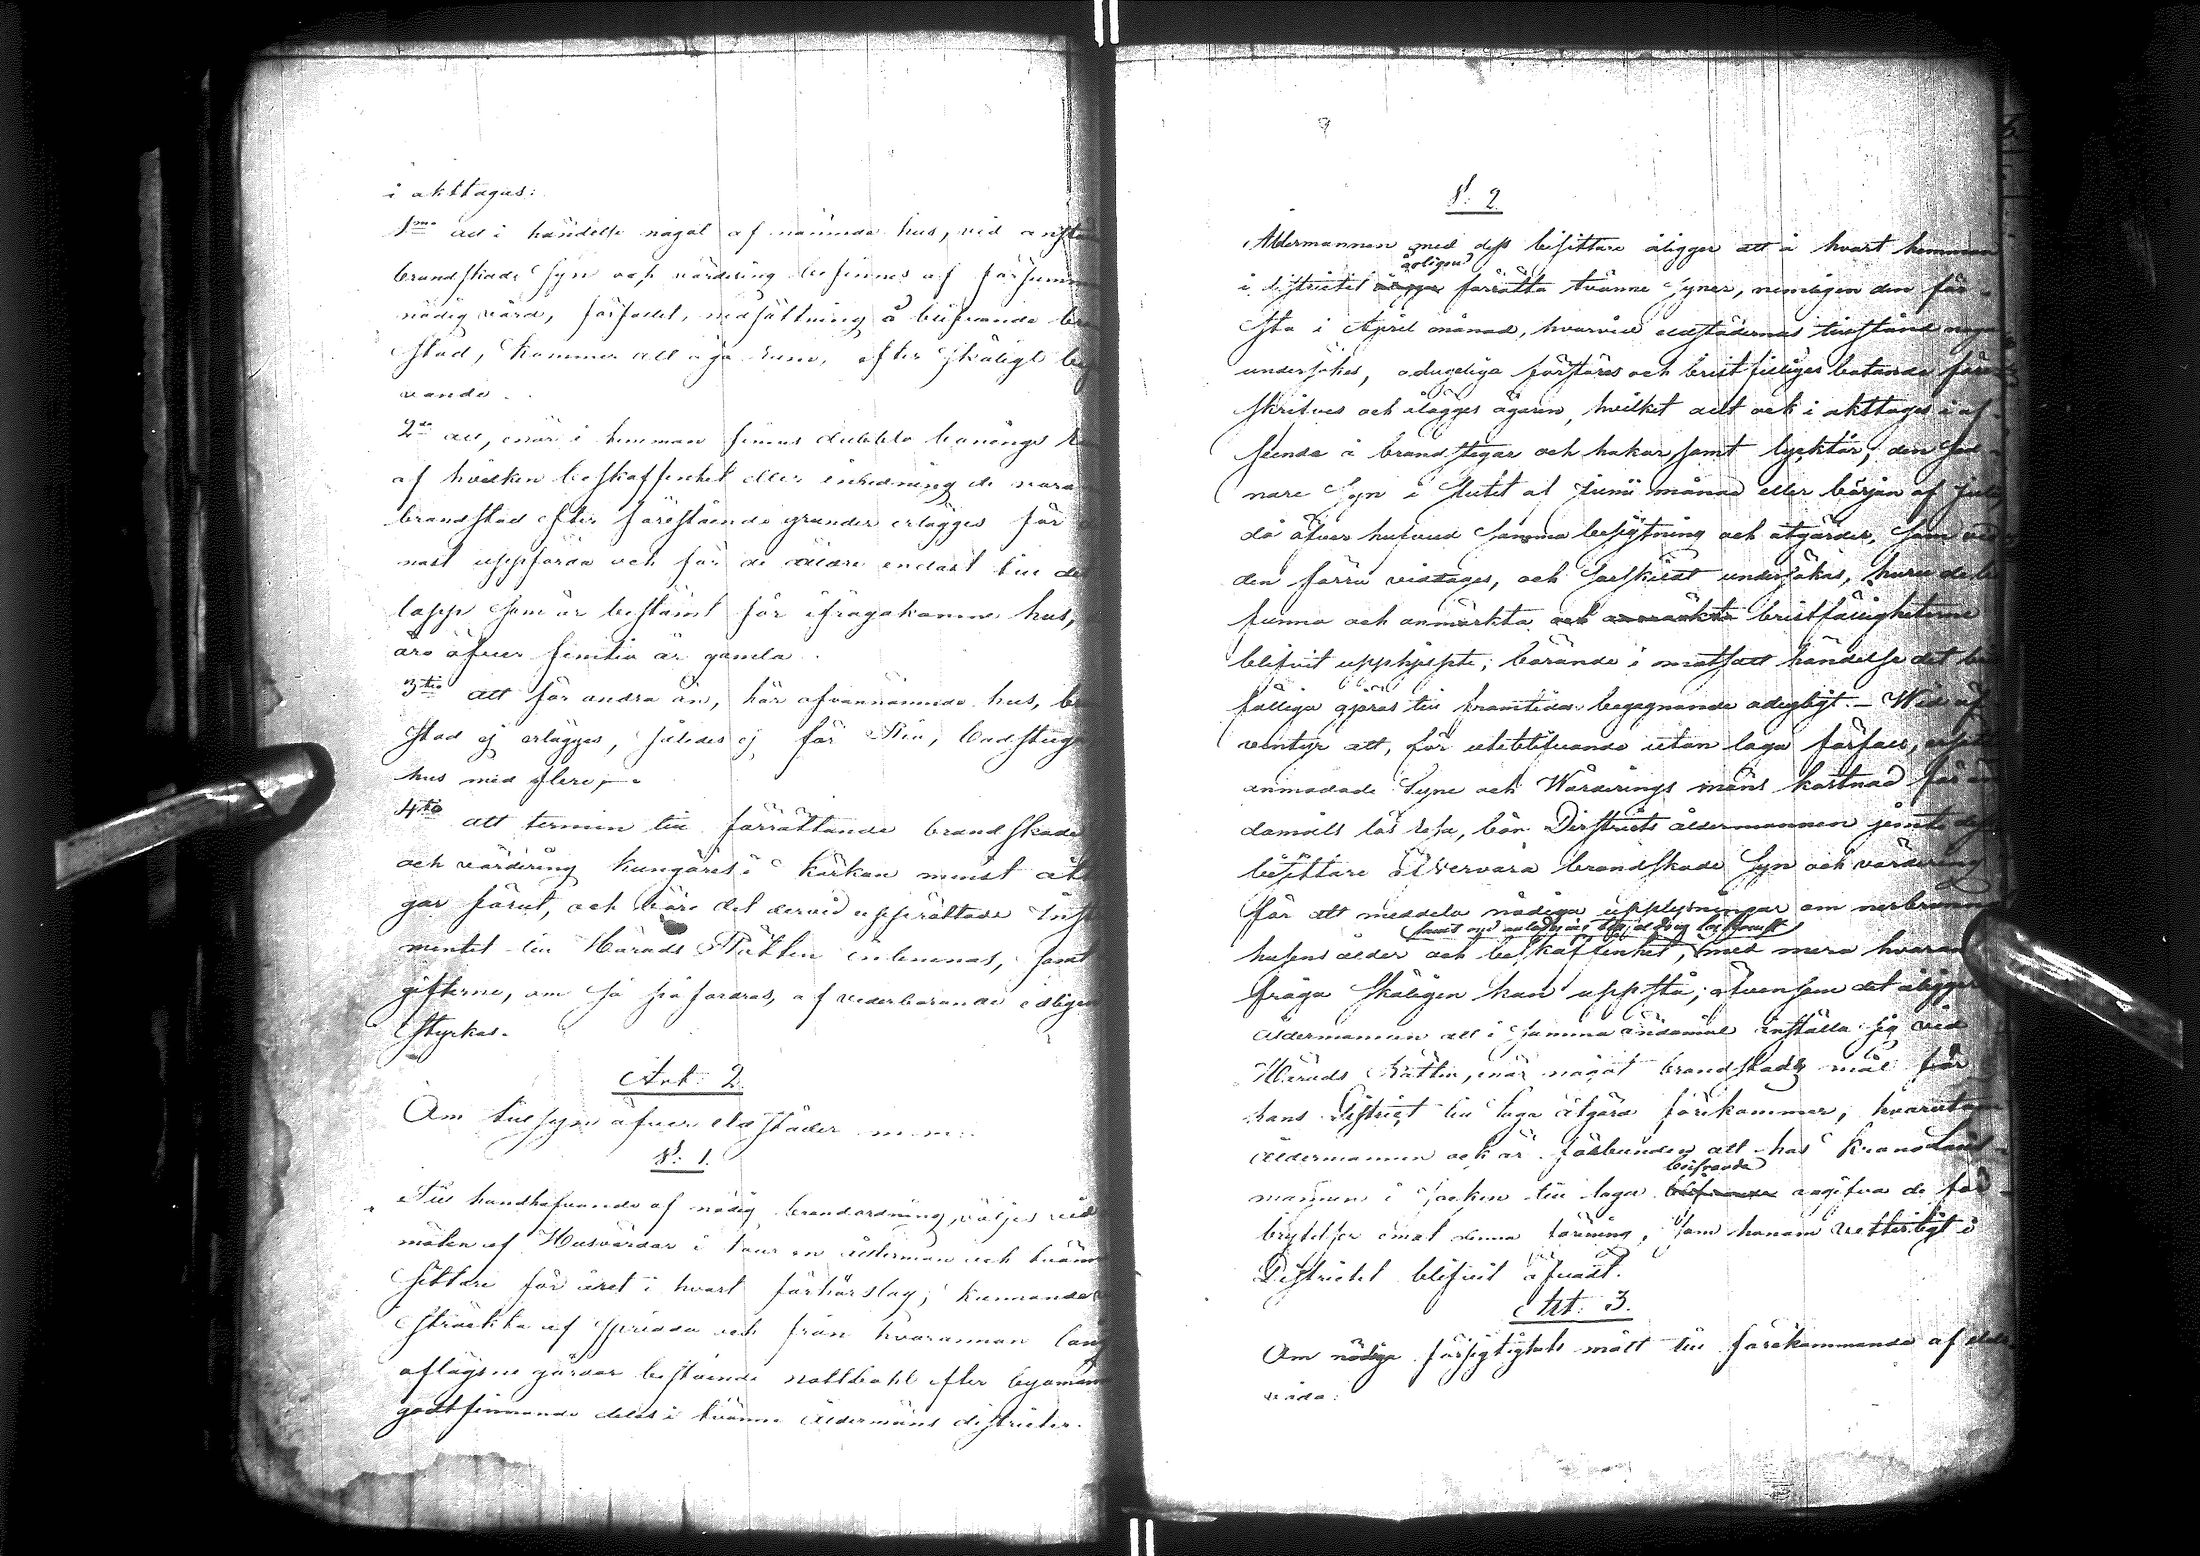 i akttagas:
1mo att i händelse något af nämnde hus, vid anstäl
brandskade Syn och värdering befinnes af försumm
nödig vård, förfadet, nedsättning å blifvande bra
stod, kommer att äga rum, efter skäligt be
vande.
2do att, när i hemman finnas dubbla bonings
af hvilken beskaffenhet eller inredning de vara
brandstod efter föreståendegrunder erlägges för
nast uppförda och för de äldre endast till det
lopp som är bestämt för ifrågakomne hus,
äro öfver femtio år gamla.
3tio att för andra än, här ofvannämnde hus, br
stod ej erlägges, således ej för Ria, badstuga
hus med flere,
4to att termin till förrättande brandskade
och värdering kungöres i kÿrkan minst åt
gar förut, och bör det dervid upprättade Inst
mentet till Härads Rätten inlemnas, samt
gifterne, om så påfordras, af vederbörande edligen
styrkas.
Art: 2.
Om tillsyn öfver eldstäder m.m:
§: 1.
Till handhafvande af nödig brandordning, väljes vid
möten af Husvärdar i laur en ålderman och tvänn
sittare för året i hvart förhörslag; kunnande
sträckta af spridda och från hvarannan lång
aflägsne gårdar bestående nattlbohl efter byamän
godtfinnande delas i tvänne Åldermäns districter.
§: 2.
Åldermannen med dess bisittare åligger att å hvart hemman
årligen
i districtet förrätta tvänne Syner, nemligen den för-
sta i April månad, hvarvid eldstädernas tillstånd noga
undersökes, odugeliga förstöres och bristfälliges botande före
skrifves och ålägges ägaren, hvilket allt ock i akttages i af-
seende å brandstegar och hakar, samt lycktår; den sed-
nare Syn i slutet af Junii månad eller början af Juli,
då öfver hufvud samma besigtning och åtgärder, som vid
den förra vidtages, och särskildt undersökas, huru de be
funna och anmärkta och anmärkta bristfälligheterne
blifvit upphjelpte; börande i motsatt händelse det br
fälliga göras till framtida begagnande odugligt. – Wid äf
ventyr att, för uteblifvande utan laga förfall,
anmodade Syne och Wärderings mäns kostnad för
damåls lös resa, bör Districts åldermannen jemte dess
bisittare öfvervara brandskade Syn och värdering
för att meddela nödiga upplysningar om nerbrunn
husens ålder och beskaffenhet, med mera hvarom
fråga skäligen kan uppstå; äfvensom det åligger
åldermannen att i samma ändamål inställa sig vid
Härads Rätten, när något brandskade mål från
hans District till laga åtgärd förekommer; hvarutom
åldermannen ock är förbunden att hos Kronoläns-
blifvande
mannen i Socken till laga angifva de för-
brytelser emot denna förening, som honom vetterligt i
Districtet blifvit öfvadt.
Art: 3.
Om nödiga försigtighets mått till förekommande af elds
våda: